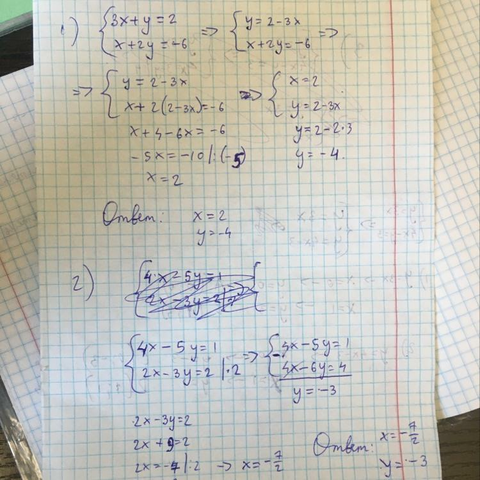 1) { 3x+y=2 => { y=2-3x =>
x+2y=-6 x+2y=-6
=> { y=2-3x => { x=2
x+2(2-3x)=-6 y=2-3x
x+4-6x=-6 y=2-2·3
-5x=-10 |:(-5) y=-4
x=2
Ответ: x=2
y=-4
2) { 4x-5y=1
2x-3y=2
{ 4x-5y=1 => { 4x-5y=1
2x-3y=2 |·2 4x-6y=4
y=-3
2x-3y=2
2x+9=2
2x=-7 |:2 -> x=-7/2
Ответ: x=-7/2
y=-3